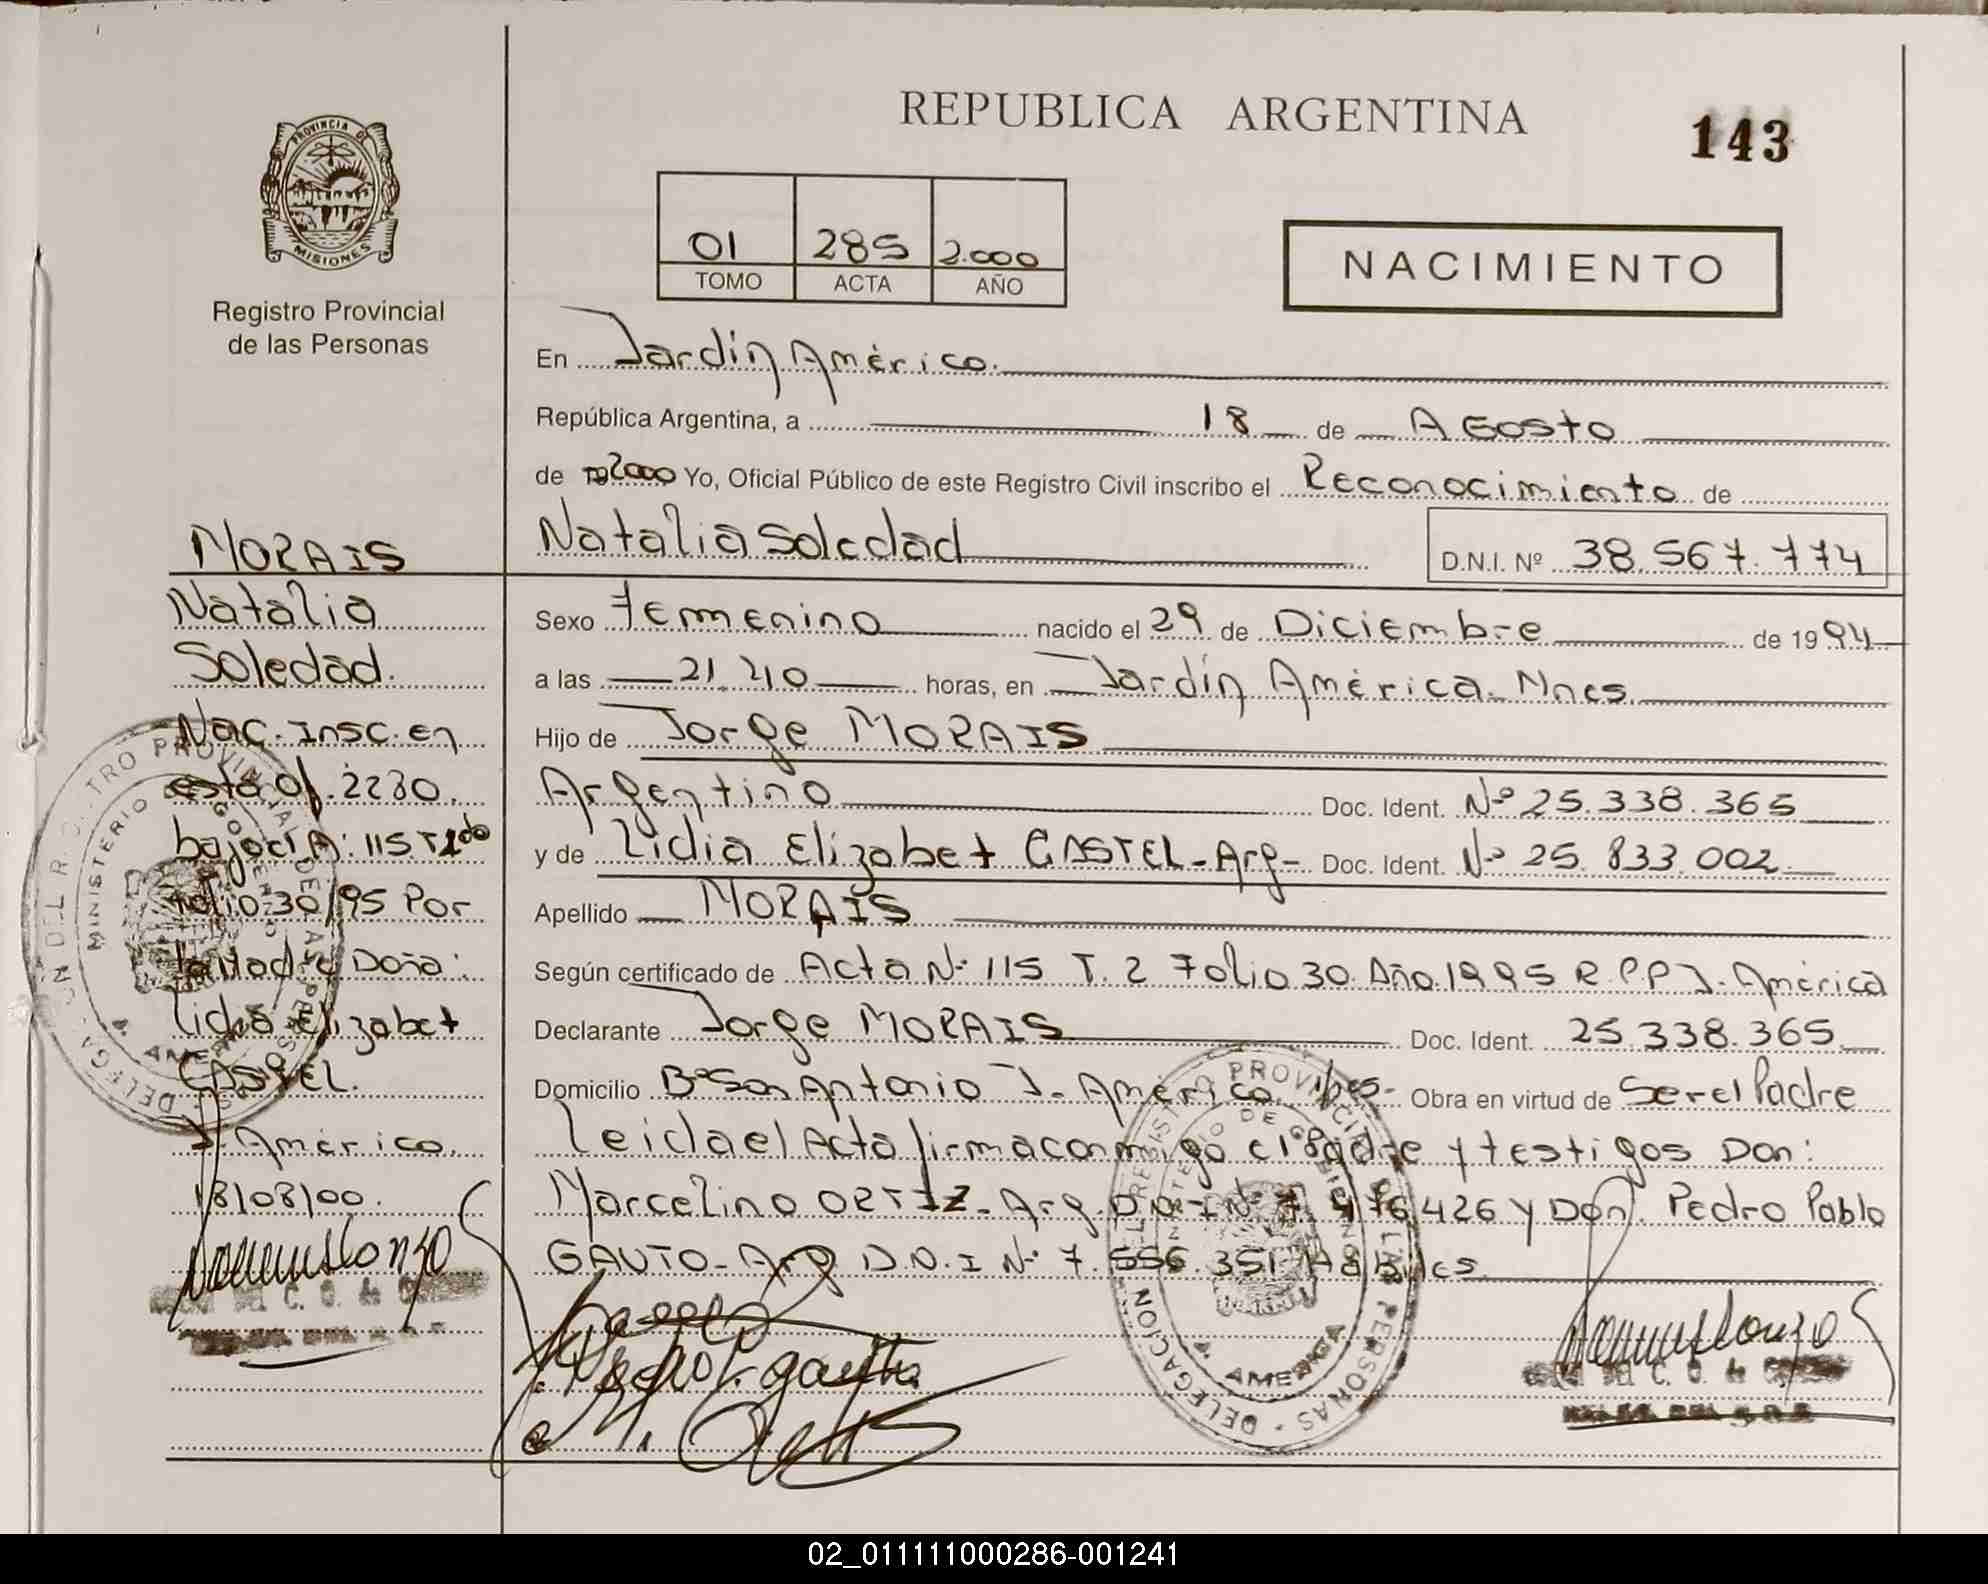 REPUBLICA ARGENTINA
143
PROVINCIA DE
MISIONES
Registro Provincial
de las Personas
01 285 2.000
TOMO ACTA AÑO
NACIMIENTO
En Jardín América.
República Argentina, a 18 de AGosto
de 2000 Yo, Oficial Público de este Registro Civil inscribo el Reconocimiento de
Natalia Soledad D.N.I. Nº 38.567.774
Sexo Femenino nacido el 29 de Diciembre de 1994
a las 21.40 horas, en Jardín América. Mnes.
Hijo de Jorge MORAIS
Argentino Doc. Ident. Nº 25.338.365
y de Lidia Elizabet CASTEL - Arg - Doc. Ident. Nº 25.833.002
Apellido MORAIS
Según certificado de Acta Nº 115 T. 2 Folio 30. Año 1995 R.P.P J. América
Declarante Jorge MORAIS Doc. Ident. 25.338.365
Domicilio Bº San Antonio J. América. Mnes - Obra en virtud de Ser el Padre
Leida el Acta firma conmigo el Padre y testigos Don:
Marcelino ORTIZ - Arg. D.N.I Nº 426 y Don. Pedro Pablo
GAUTO - Arg D.N.I Nº 7.556.351 Hábiles.
MORAIS
Natalia
Soledad.
Nac. Insc. en
esta Of. 2230.
bajo el A: 115. T 2do
Folio 30/95 Por
la Madre Doña:
Lidia Elizabet
CASTEL.
J. América.
18/08/00.
Pedro P. gauto
DELEGACION DEL REGISTRO PROVINCIAL DE LAS PERSONAS
MINISTERIO DE GOBIERNO
J. AMERICA
DELEGACION DEL REGISTRO PROVINCIAL DE LAS PERSONAS
MINISTERIO DE GOBIERNO
J. AMERICA
02_011111000286-001241